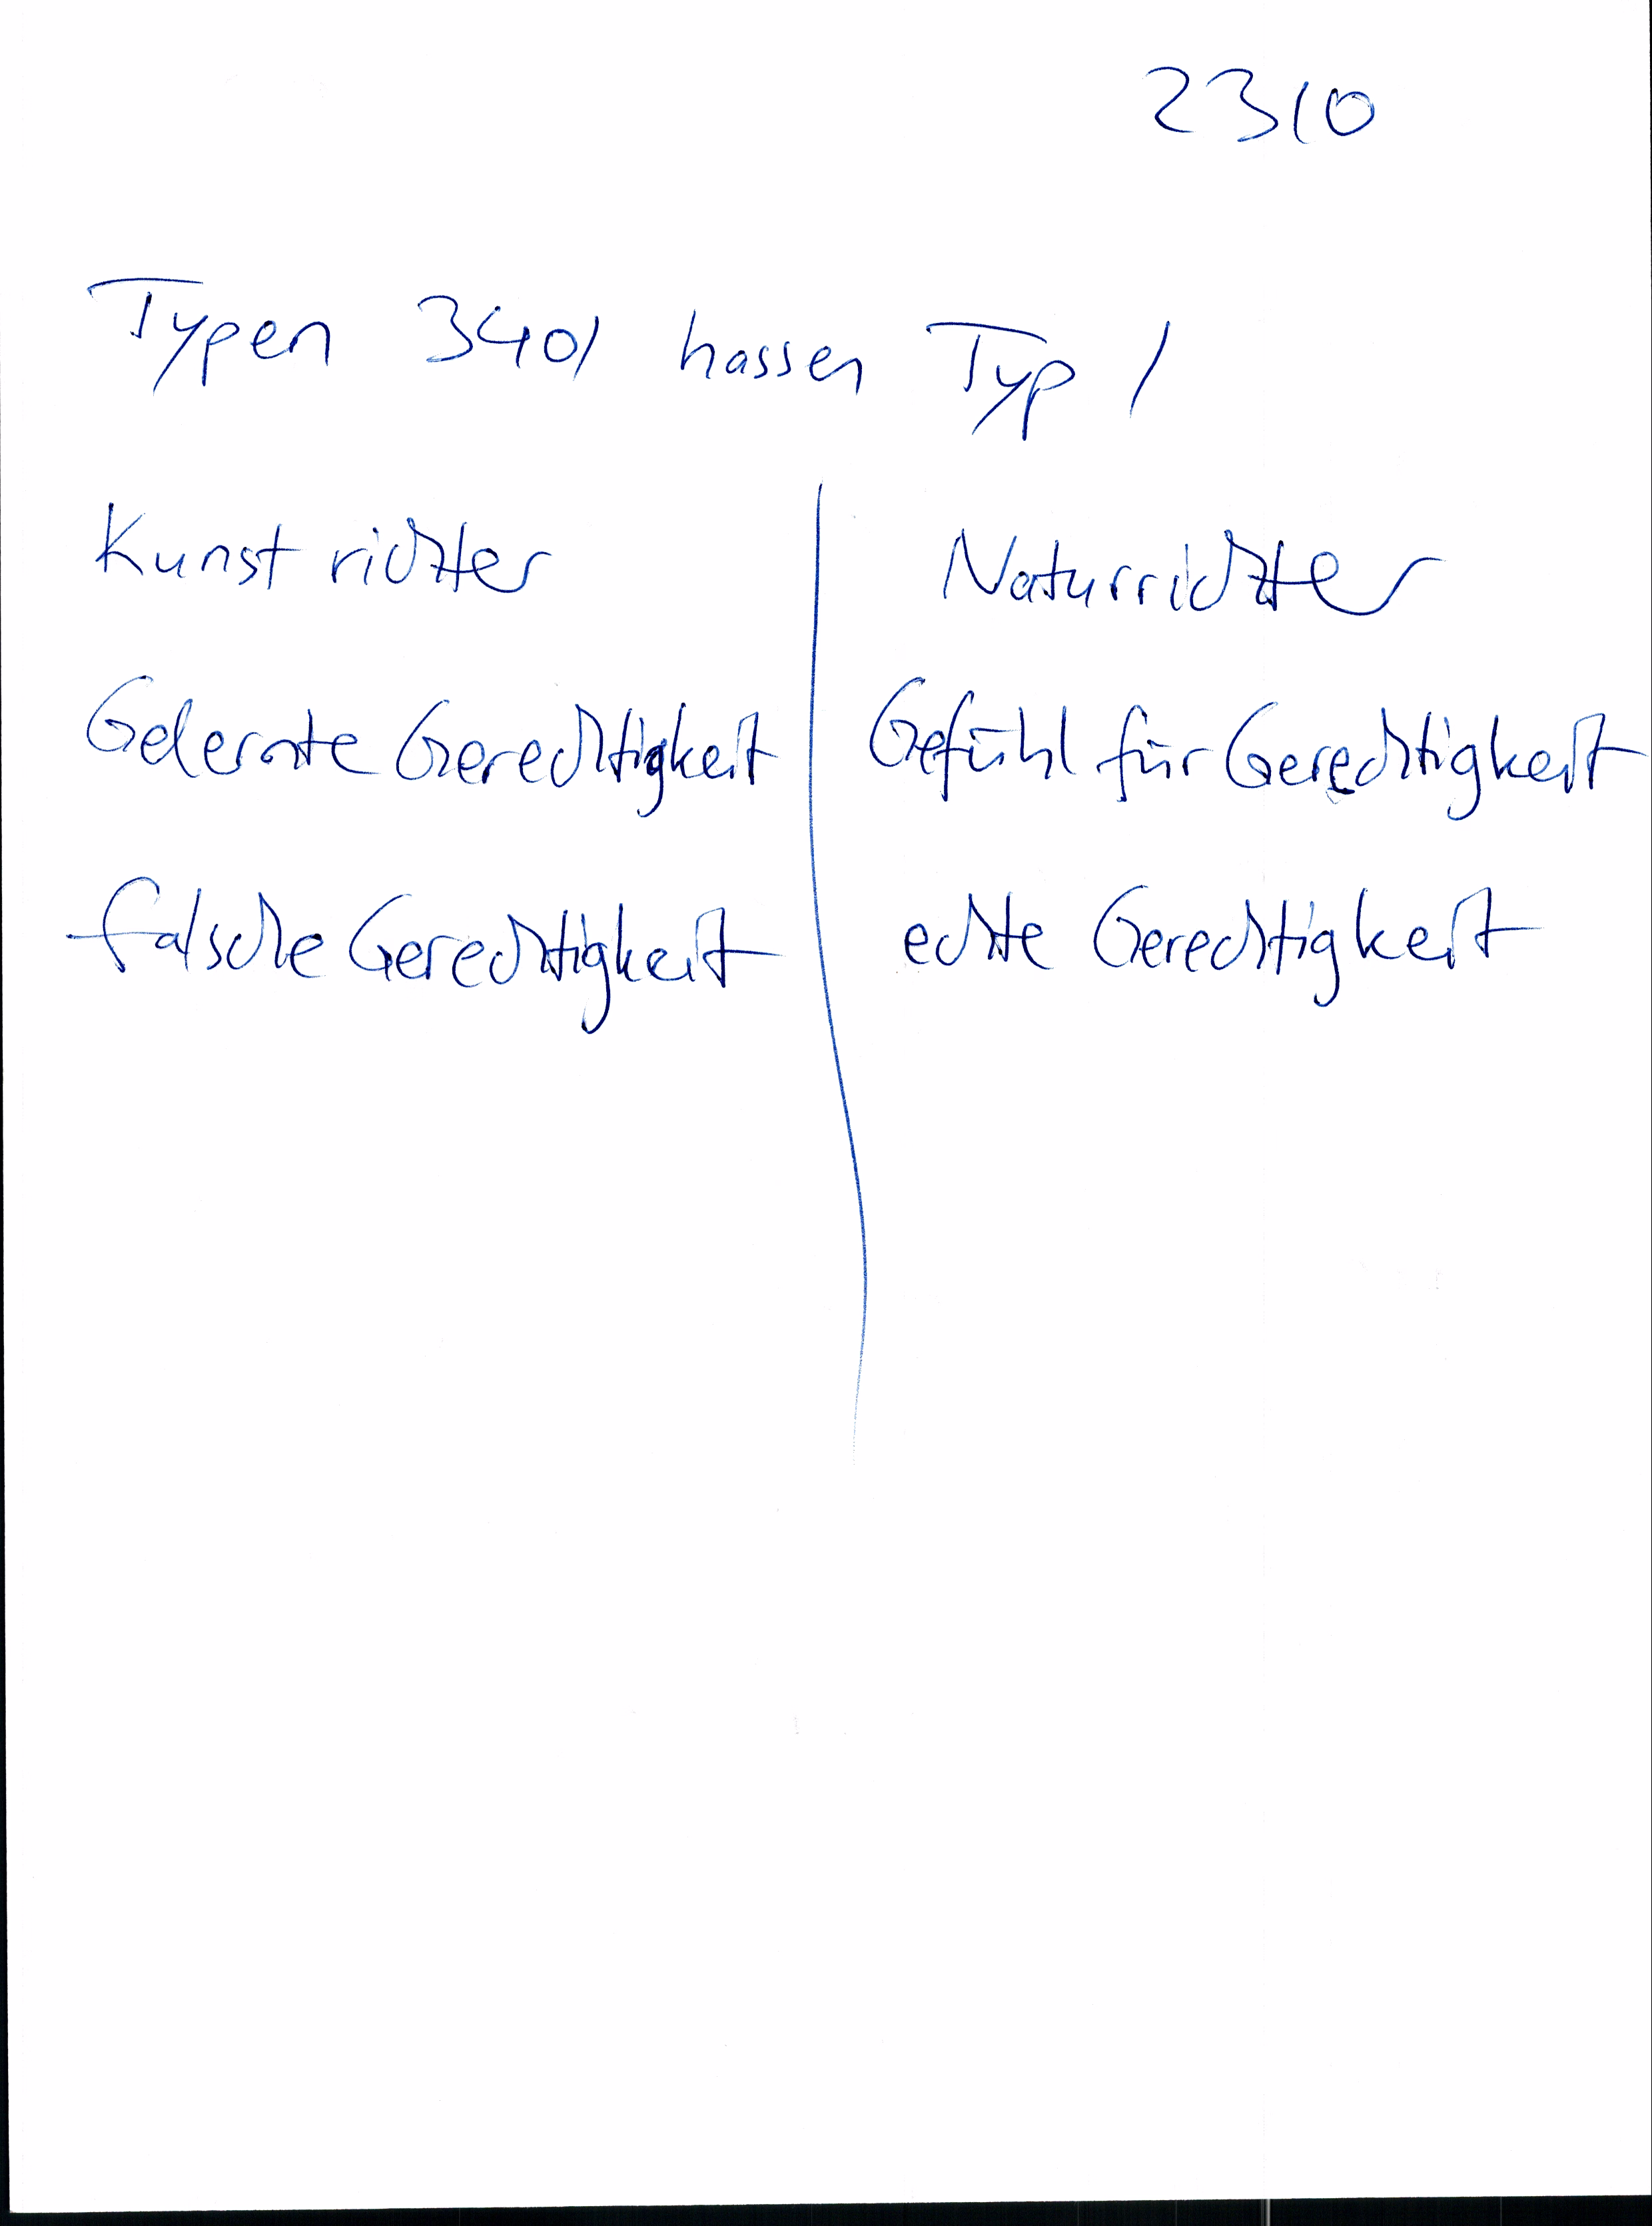 2310
Typen 3401 hassen Typ 1
Kunstrichter
Naturrichter
Gelernte Gerechtigkeit
Gefühl für Gerechtigkeit
falsche Gerechtigkeit
echte Gerechtigkeit